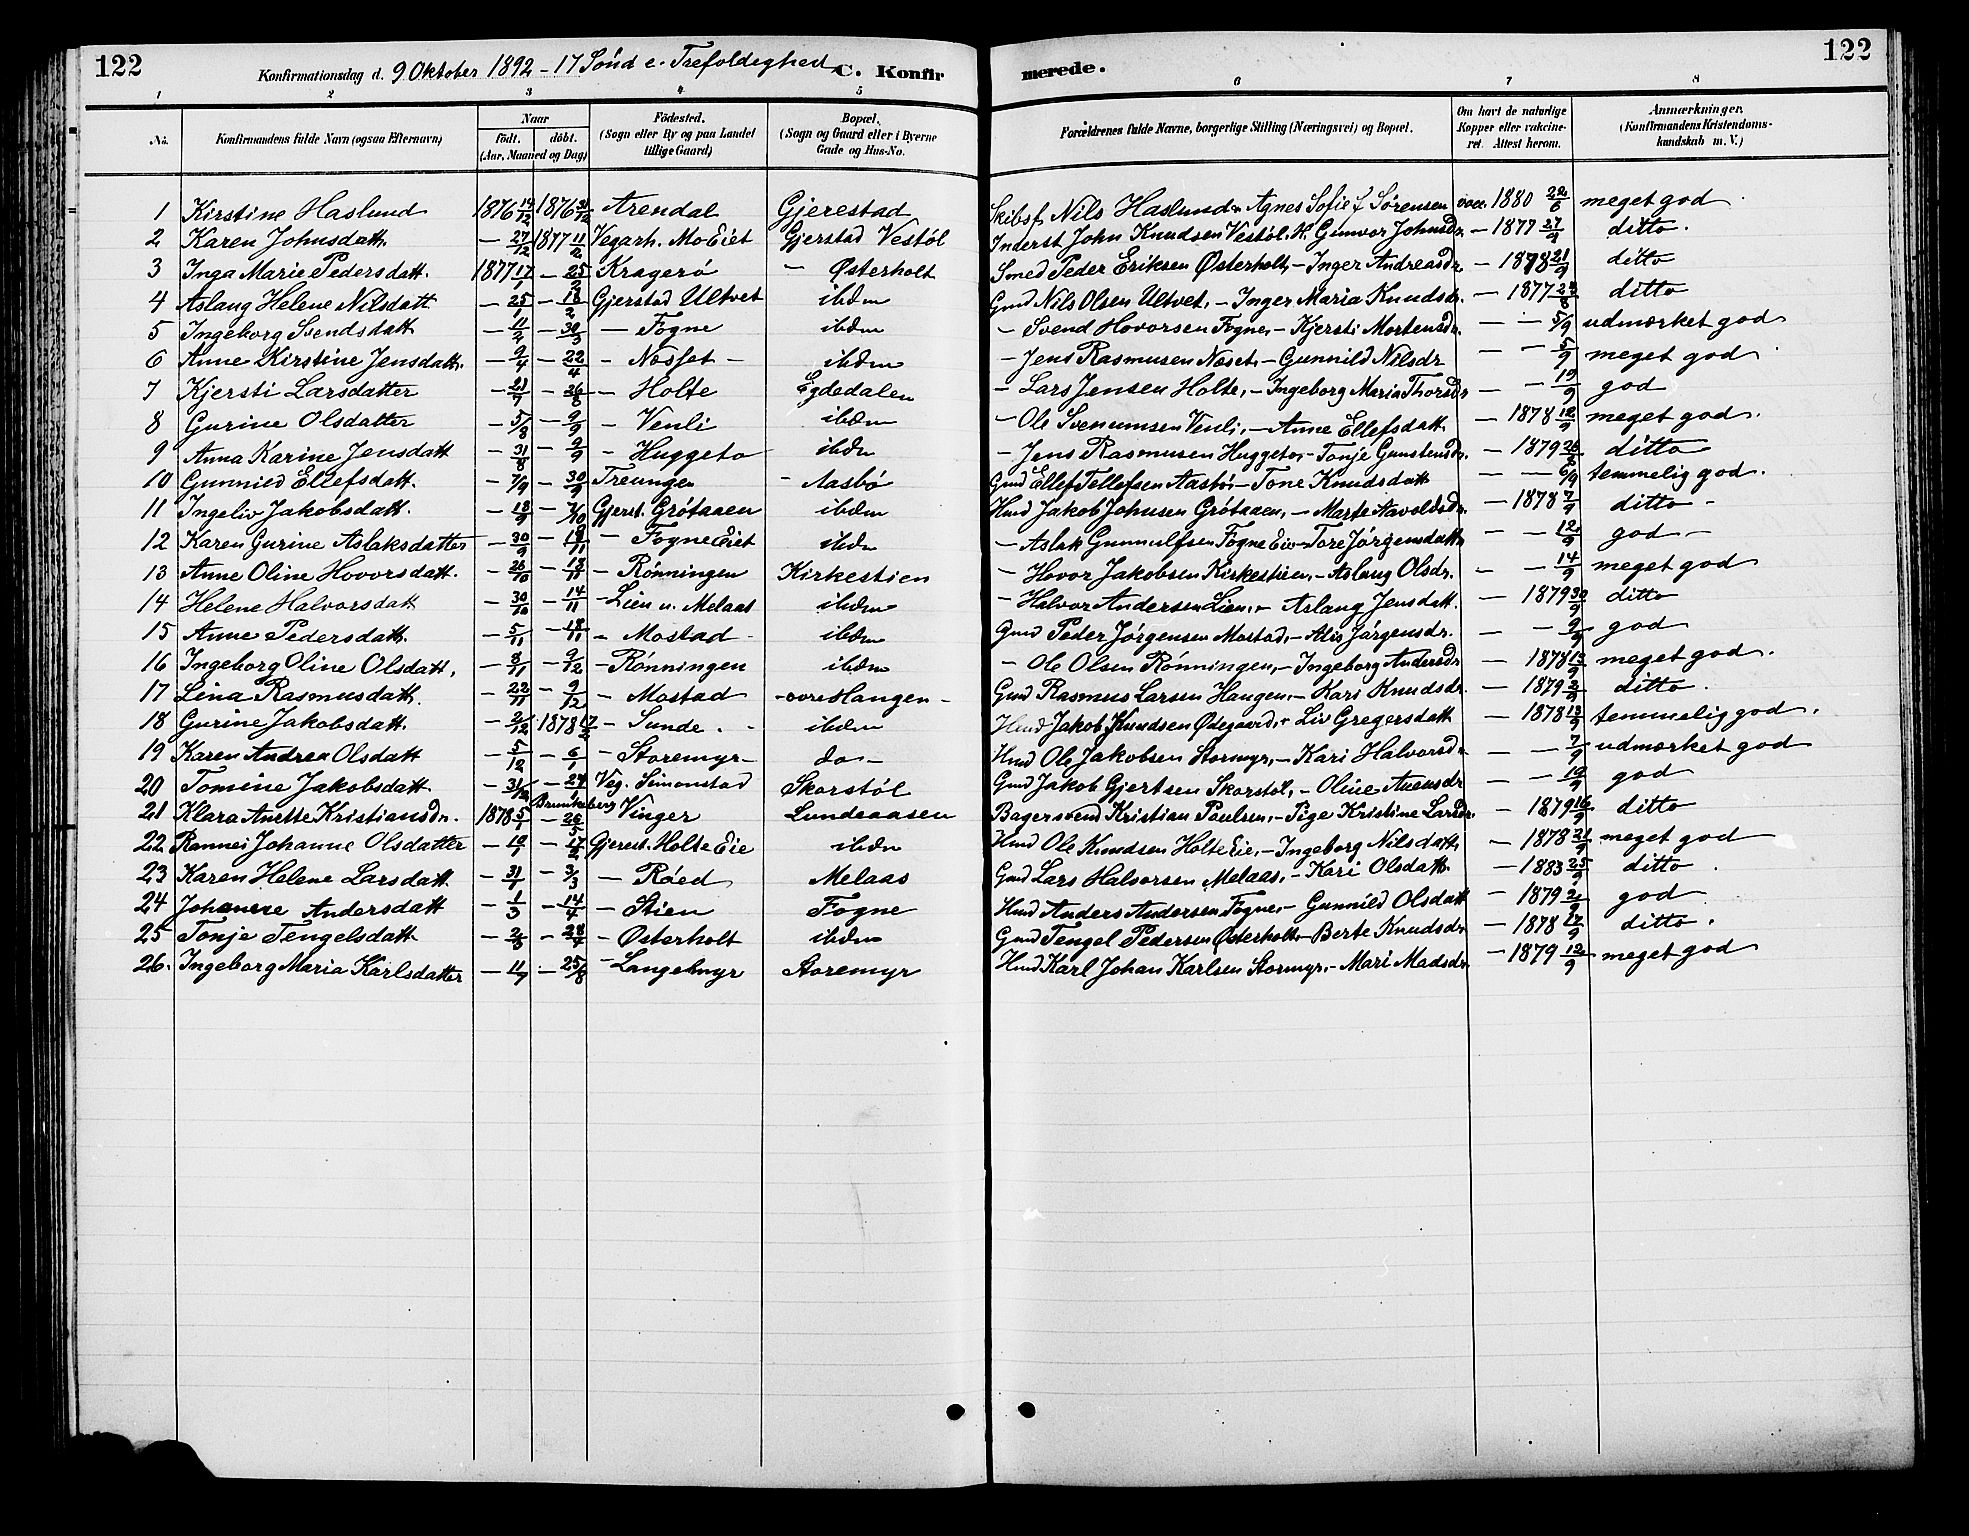 122 Konfirmationsdag d. 9 Oktober 1892 - 17 Sønd e. Trefoldighed C. Konfir merede. 122
1 2 3 4 5 6 7 8
No. Konfirmandens fulde Navn (ogsaa Efternavn) Naar født. døbt. (Aar, Maaned og Dag) Fødested. (Sogn eller By og paa Landet tillige Gaard) Bopæl. (Sogn og Gaard eller i Byerne Gade og Hus-No. Forældrenes fulde Navne, borgerlige Stilling (Næringsvei) og Bopæl. Om havt de naturlige Kopper eller vakcineret. Attest herom. Anmærkninger. (Konfirmandens Kristendomskundskab m. V.)
1 Kirstine Haslund 1876 19/12 1876 31/12 Arendal Gjerestad Skibsf. Nils Haslund Agnes Sofie f Sørensen vacc. 1880 22/6 meget god
2 Karen Johnsdatt. - 27/12 1877 11/2 Vegarh. Mo Eiet Gjerstad Vestøl Inderst John Knudsen Vestøl. H. Gunvor Johnsdr. - 1877 27/9 ditto.
3 Inga Marie Pedersdatt. 1877 17/1 - 25/2 Kragerø - Østerholt Smed Peder Eriksen Østerholt, - Inger Andreasdr. - 1878 21/9 ditto
4 Aslaug Helene Nilsdatt - 25/1 - 18/2 Gjerstad Ultvet ibdm Gmd Nils Olsen Ultvet, - Inger Maria Knudsdr. - 1877 /8 ditto
5 Ingeborg Svendsdatt - 11/2 - 30/3 - Fogne ibdm - Svend Hovorsen Fogne, - Kjersti Mortensdr. - - 5/9 udmærket god
6 Anne Kirstine Jensdatt. - 9/4 - 22/4 - Næsset - ibdm - Jens Rasmusen Næset, - Gunnild Nilsdr - - 5/9 meget god
7 Kjersti Larsdatter - 21/7 - 26/8 - Holte Egdedalen - Lars Jensen Holte, - Ingeborg Maria Thorsdr - - 19/9 god
8 Gurine Olsdatter - 5/8 - 9/9 - Venli ibdm - Ole Venli, - Anne Ellefsdatt - 1878 12/9 meget god.
9 Anna Karine Jensdatt - 31/8 - 9/9 - Huggeto ibdm - Jens Rasmusen Huggeto, - Tonje Gunstensdr. - 1879 26/ ditto
10 Gunnied Ellefsdatt. - 7/9 - 30/9 Treungen - Aasbø Gmd Ellef Tellefsen Aasbø - Tone Knudsdatt - - 6/9 temmelig god.
11 Ingeliv Jakobsdatt. - 13/9 - 7/10 Gjerst. Grøtaaen ibdm Hmd Jakob Johnsen Grøtaaen, - Marte Aavoldsdr. - 1878 7/9 ditto -
12 Karen Gurine Aslaksdatter - 30/9 - 18/11 - Fogne Eiet ibdm - Aslak Gunnulfsen Fogne Eie - Tore Jørgensdatt - - 12/9 god -
13 Anne Oline Hovorsdatt. - 26/10 - 18/11 - Rønningen Kirkestien - Hovor Jakobsen Kirkestien, - Aslaug Olsdr. - - 14/9 meget god
14 Helene Halvorsdatt - 30/10 - 14/11 - Lien u. Melaas ibdm - Halvor Andersen Lien, - Aslaug Jensdatt. - 1879 30/9 ditto
15 Anne Pedersdatt. - 5/11 - 18/11 - Mostad - ibdm Gmd Peder Jørgensen Mostad, - Alis Jørgensdr. - - 9/9 god
16 Ingeborg Oline Olsdatt, - 8/11 - 9/12 - Rønningen ibdm - Ole Olsen Rønningen, - Ingeborg Andersdr - 1878 13/9 meget god.
17 Lina Rasmusdatt. - 22/11 - 9/12 - Mostad - Hangen - Gmd Rasmus Larsen Haugen, - Kari Knudsdr. - 1879 2/9 ditto.
18 Gurine Jakobsdatt. - 2/12 1878 17/2 - Sunde. - ibdm Hmd Jakob Knudsen Ødegaard, - Liv Gregersdatt - 1878 13/9 temmelig god.
19 Karen Andrea Olsdatt - 5/12 - 6/1 - Storemyr - do - Hmd Ole Jakobsen Stormyr, - Kari Halvorsdr - - 7/9 udmærket god
20 Tomine Jakobsdatt. - 31/12 - 27/1 Veg. Simonstad Skorstøl Gmd Jakob Gjertsen Skorstøl, - Oline Aanensdr - - 19/9 god
21 Klara Anette Kristiansdr. 1878 5/1 - 26/5 Brunkeberg Vinger Lundeaasen Bagersvend Kristian Paulsen, - Pige Kristine Larsdr. - 1879 16/9 ditto
22. Rannei Johanne Olsdatter - 10/1 - 17/2 Gjerst. Holte Eie ibdm Hmd Ole Knudsen Holte Eie, - Ingeborg Nilsdatt. - 1878 21/9 meget god
23 Karen Helene Larsdatt - 31/1 - 3/3 - Røed Melaas Gmd Lars Halvorsen Melaas, - Kari Olsdatt. - 1883 25/9 ditto
24 Johanne Andersdatt - 1/3 - 14/4 - Stien Fogne Hmd Anders Andersen Fogne, - Gunnild Olsdatt - 1879 2/9 god
25 Tonje Tengelsdatt - 2/3 - 28/4 - Østerholt ibdm Gmd Tengel Pedersen Østerholt - Berte Knudsdr. - 1878 17/9 ditto.
26. Ingeborg Maria Karlsdatter - 11/7 - 25/8 - Langemyr Storemyr Hmd Karl Johan Karlsen Stormyr, - Mari Madsdr. - 1879 12/9 meget god